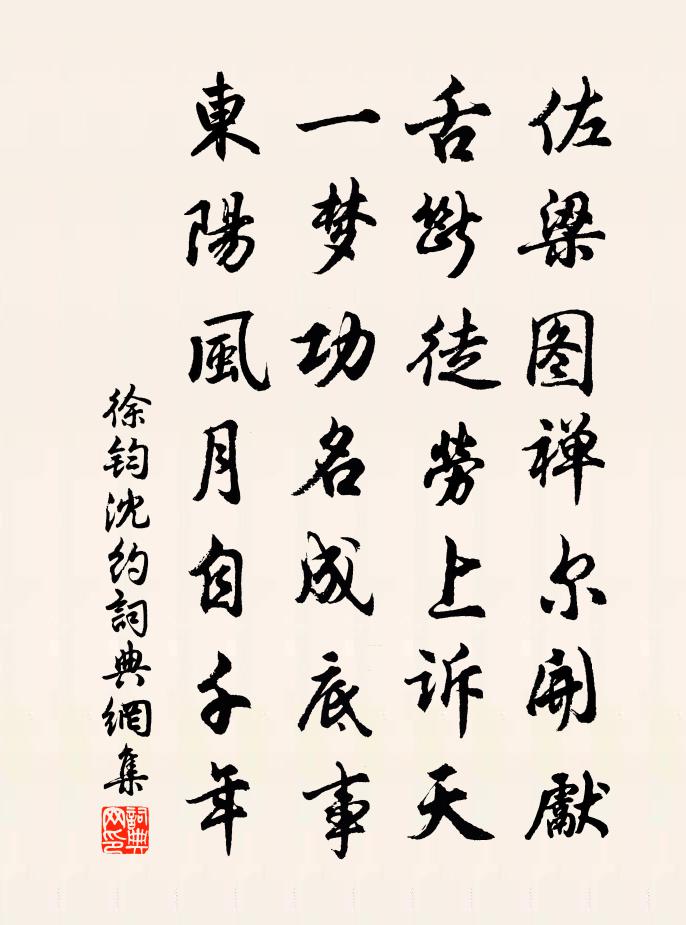 佐梁图禅尔開獻
舌斷徒勞上訴天
一梦功名成底事
東陽風月自千年
徐鈞沈約詞典網集
詞典网印